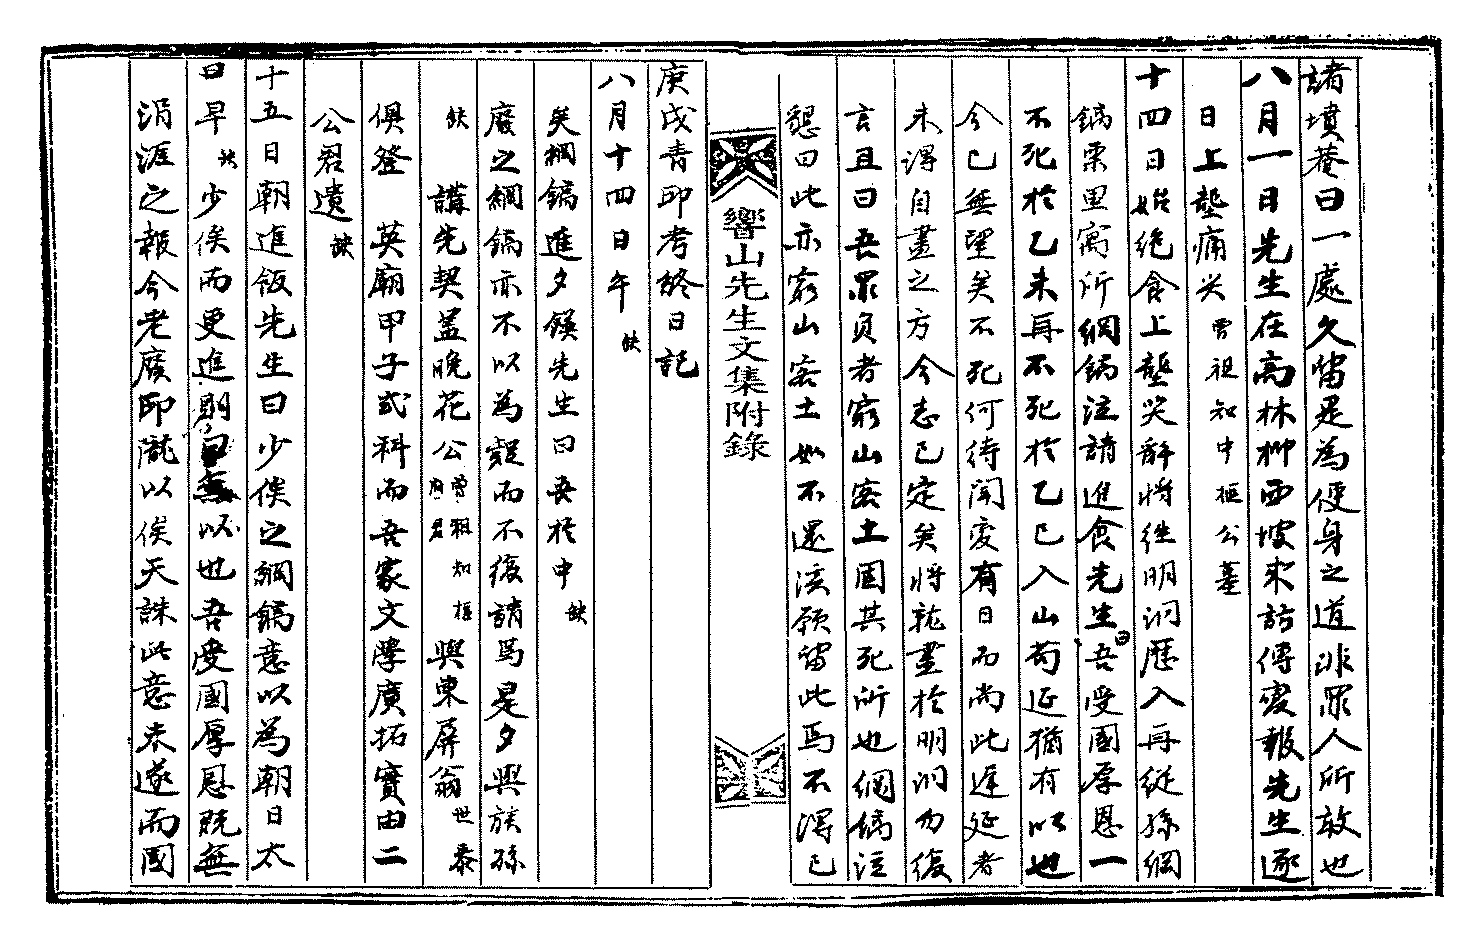 諸墳菴曰一處久留是爲便身之道非罪人所敢也
八月一日先生在高林柳西坡來訪傳變報先生逐
日上壟痛哭曾祖知中樞公墓
十四日始絶食上壟哭辭將往明洞歷入再從孫綱
鎬栗里寓所綱鎬泣請進食先生曰吾受國厚恩一
不死於乙未再不死於乙巳入山苟延猶有以也
今已無望矣不死何待聞變有日而尚此遲延者
未得自盡之方今志已定矣將就盡於明洞勿復
言且曰吾罪負者窮山密土固其死所也綱鎬泣
懇曰此亦窮山密土如不還淡願留此焉不得已
響山先生文集附錄
庚戌靑邱考終日記
八月十四日午缺
矣綱鎬進夕饌先生曰吾於中缺
廢之綱鎬亦不以爲疑而不復請焉是夕與族孫
缺 講先契盖晩花公曾祖知樞府君與東屛翁世泰
俱登 英廟甲子式科而吾家文學廣拓實由二
公君遺缺
十五日朝進飯先生曰少俟之綱鎬意以爲朝日太
曰早缺少俟而更進則曰無以也吾受國厚恩旣無
涓涯之報今老廢卽隴以俟天誅此意未遂而國